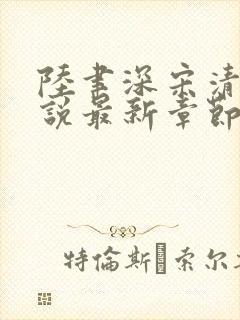 陸書深宋清
說最新章節
特倫斯·索尔